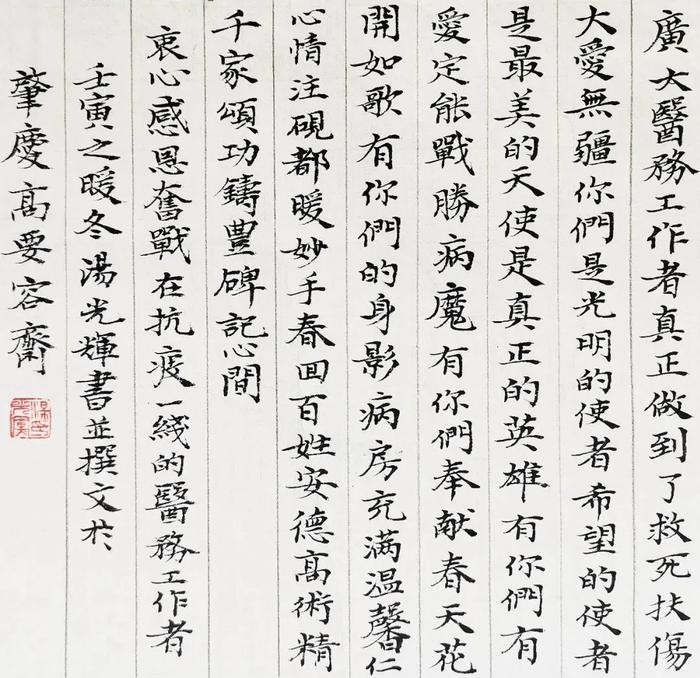 廣大醫務工作者真正做到了救死扶傷
大愛無疆你們是光明的使者希望的使者
是最美的天使是真正的英雄有你們有
愛定能戰勝病魔有你們奉献春天花
開如歌有你們的身影病房充满温馨仁
心情注硯都暖妙手春回百姓安德高術精
千家頌功鑄豊碑記心間
衷心感恩奮戰在抗疫一綫的醫務工作者
壬寅之暖冬湯光輝書並撰文於
肇慶高要容齋